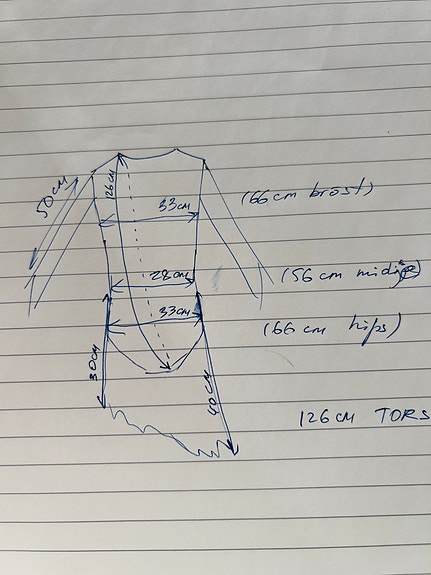 50 CM
126 CM
33 CM
(66 cm bröst)
28 CM
33 CM
(66 cm hips)
30 CM
40 CM
126 CM TORS